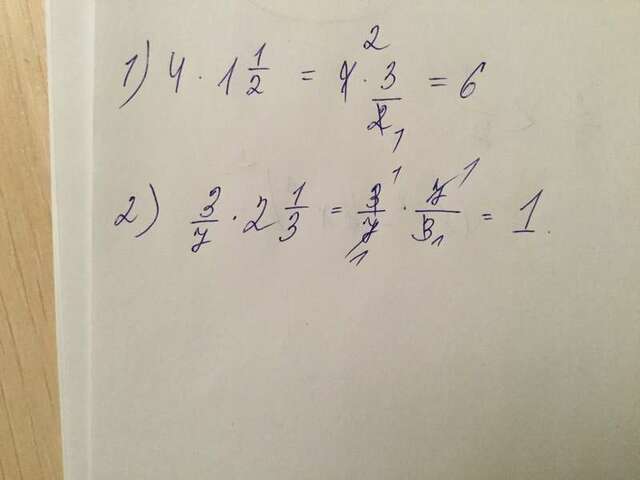 1) 4 · 1 1/2 = 4 2 · 3/2 1 = 6
2) 3/7 · 2 1/3 = 3 1/7 1 · 7 1/3 1 = 1.